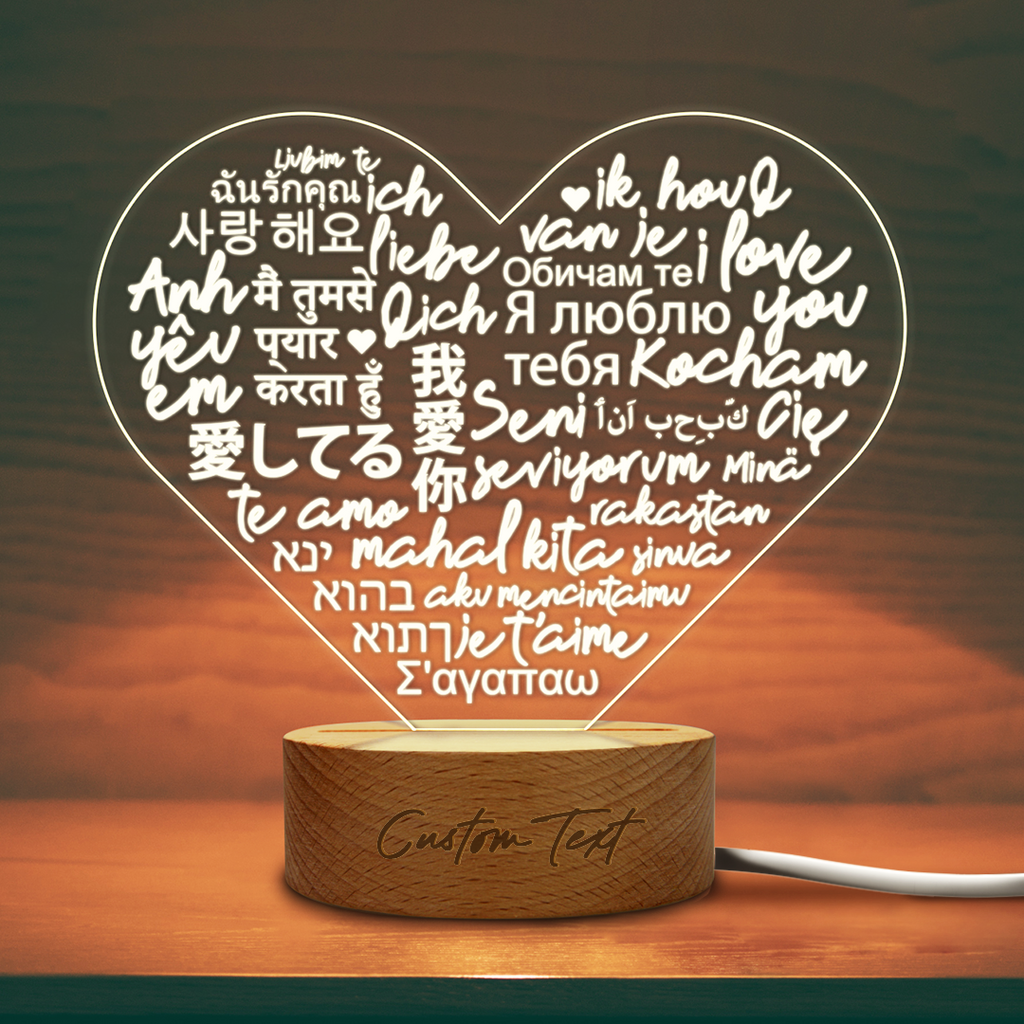 Ljubim te
ฉันรักคุณ
사랑해요
ich
liebe
Dich
Anh
yêu
em
मैं तुमसे
प्यार
करता हूँ
愛してる
我
愛
你
te amo
ik hou
van je
i love
you
Обичам те
Я люблю
тебя
Kocham
Cię
Seni
seviyorum
Minä
rakastan
sinua
mahal kita
ינא
בהוא
ךתוא
aku mencintaimu
je t'aime
Σ'αγαπαω
Custom Text